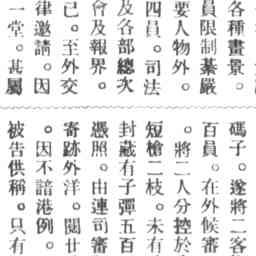 各種畫景。
員限制綦嚴
要人物外。
四員。司法
及各部總次
會及報界。
已。至外交
律邀請。因
一堂。甚屬
碼子。遂將二客
百員。在外候審
。將二人分控於
短槍二枝。未有
封藏有子彈五百
憑照。由連司審
寄跡外洋。閱廿
。因不諳港例。
被告供稱。只有